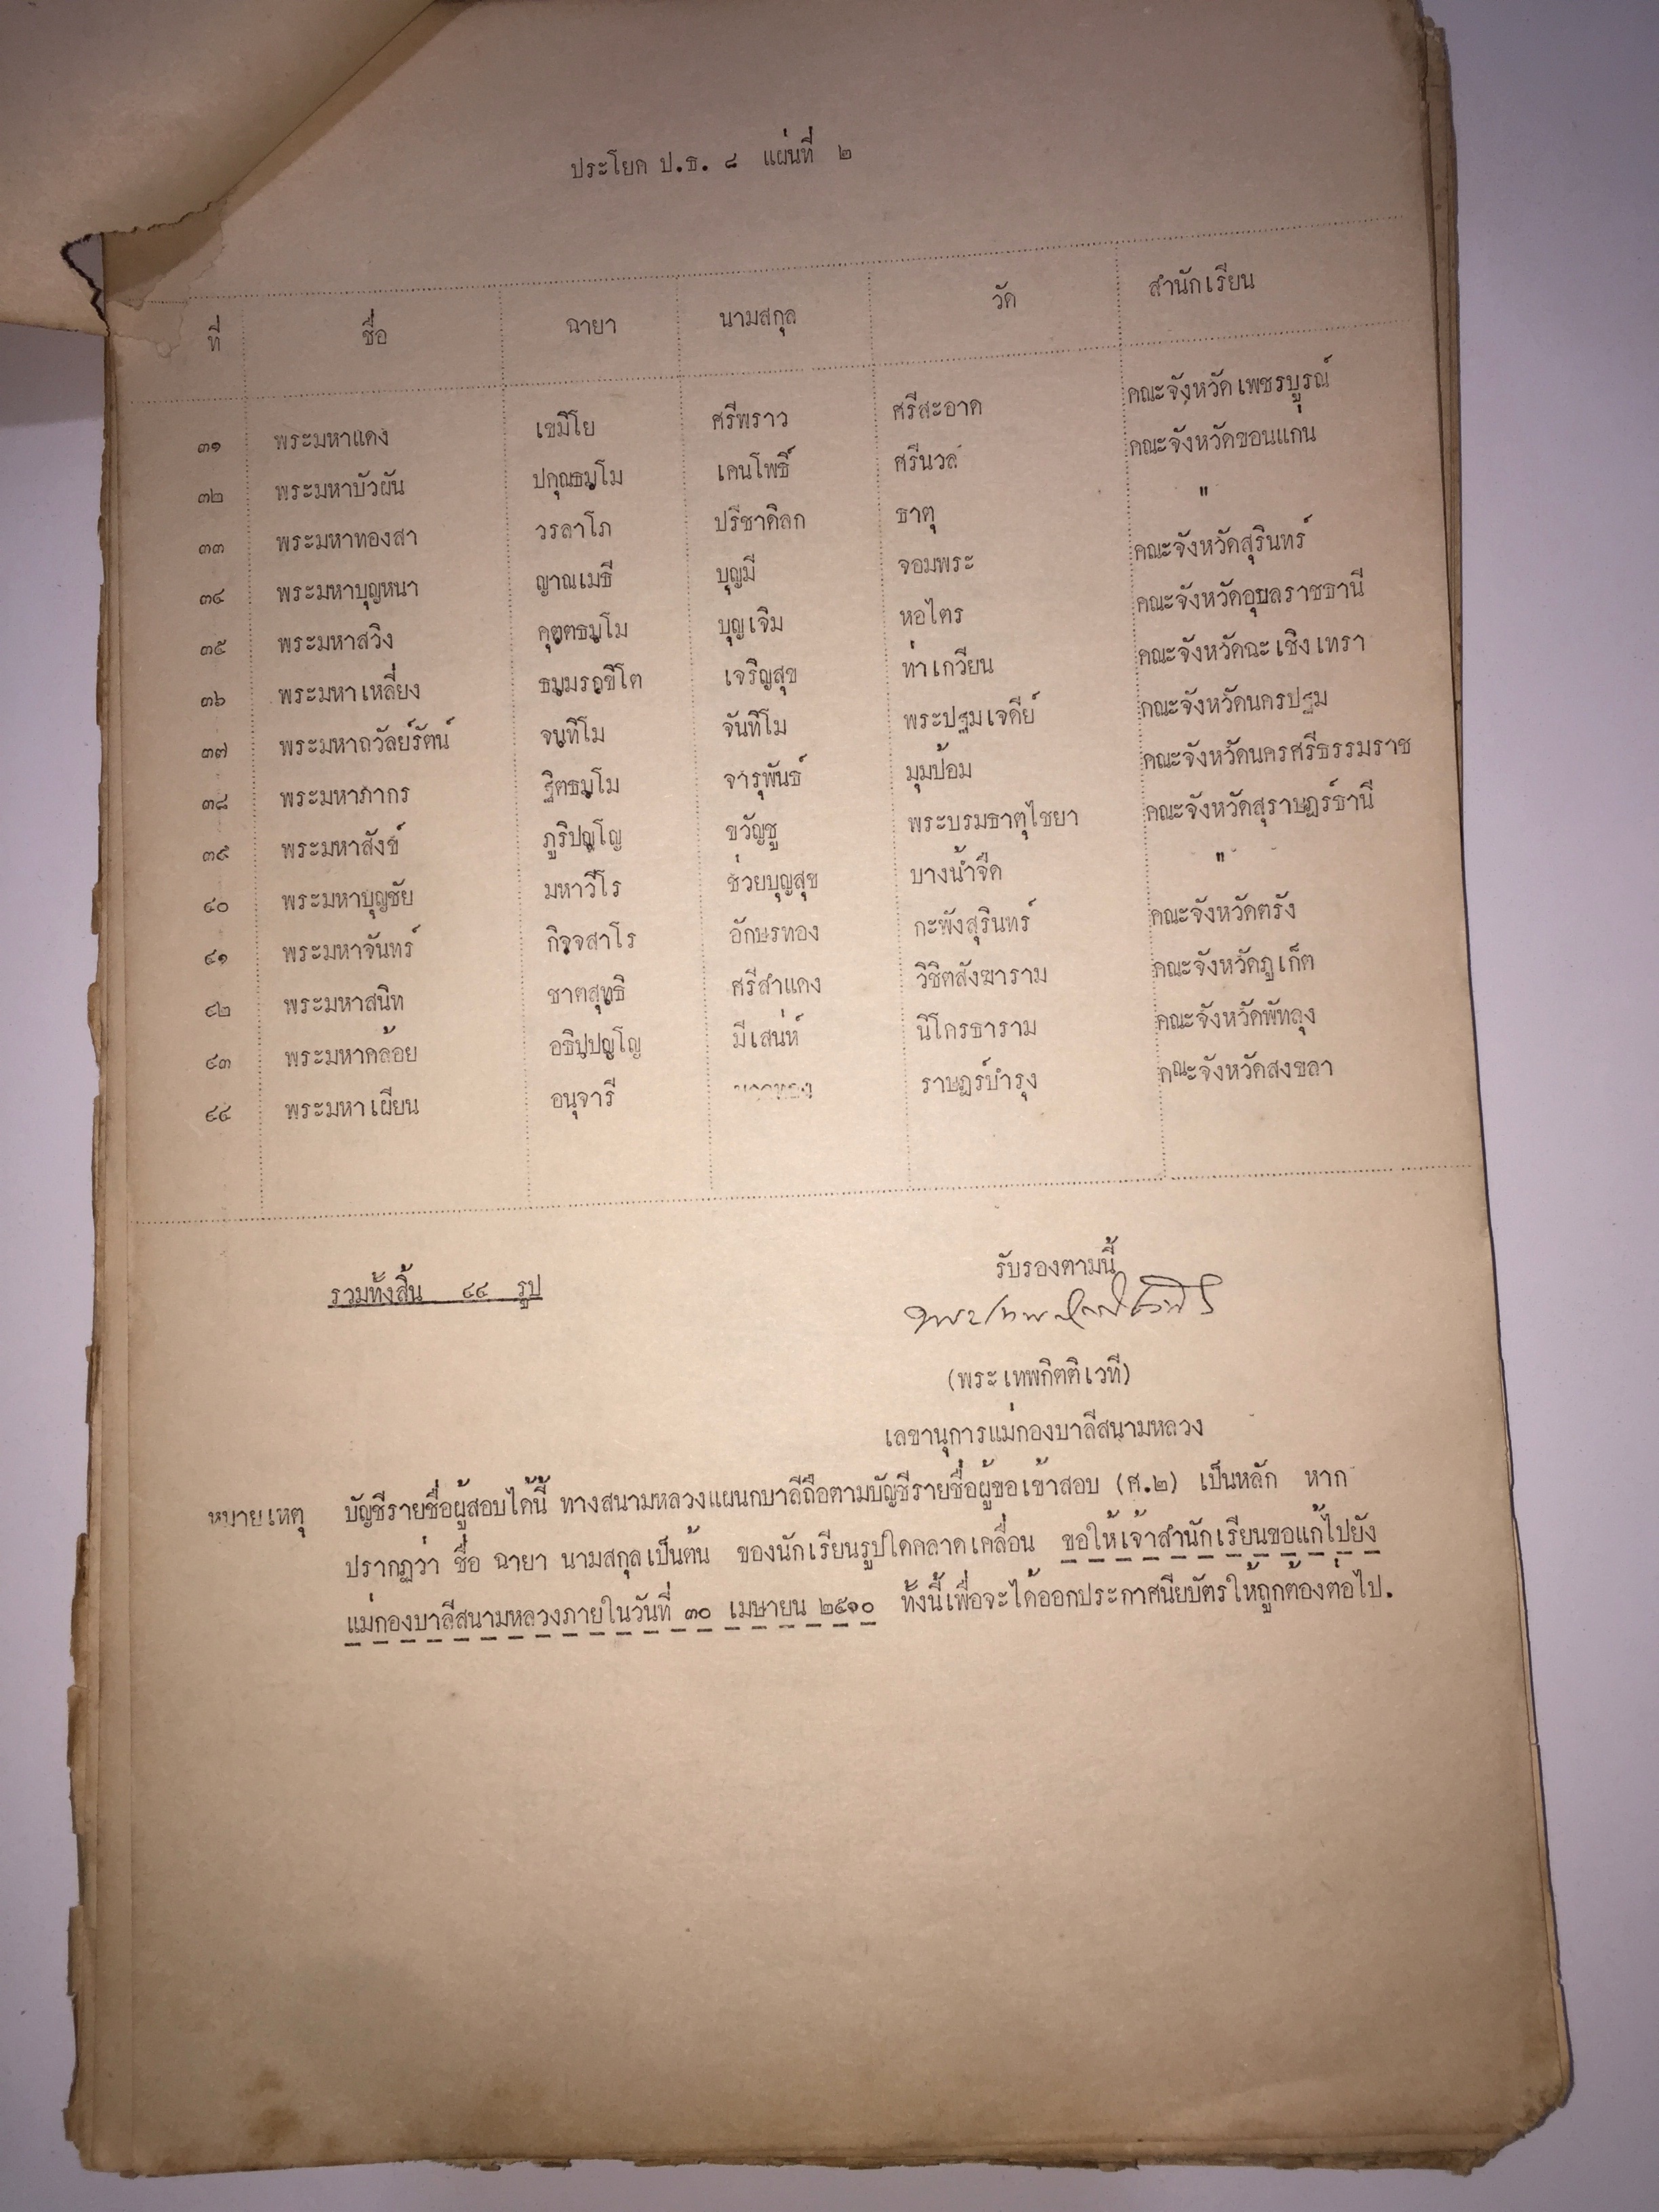 ประโยค ป.ธ. ๘ แผ่นที่ ๒
ที่ ชื่อ ฉายา นามสกุล วัด สำนักเรียน
๓๑ พระมหาแดง เขมิโย ศรีพราว ศรีสะอาด คณะจังหวัดเพชรบูรณ์
๓๒ พระมหาบัวผัน ปคุณธมฺโม เคนโพธิ์ ศรีนวล คณะจังหวัดขอนแกน
๓๓ พระมหาทองสา วรลาโภ ปรีชาดิลก ธาตุ "
๓๔ พระมหาบุญหนา ญาณเมธี บุญมี จอมพระ คณะจังหวัดสุรินทร์
๓๕ พระมหาสวิง คุตฺตธมฺโม บุญเจิม หอไตร คณะจังหวัดอุบลราชธานี
๓๖ พระมหาเหลี่ยง ธมฺมรกฺขิโต เจริญสุข ท่าเกวียน คณะจังหวัดฉะเชิงเทรา
๓๗ พระมหาถวัลย์รัตน์ จนฺทิโม จันทิโม พระปฐมเจดีย์ คณะจังหวัดนครปฐม
๓๘ พระมหาภากร ฐิตธมฺโม จารุพันธ์ มุมป้อม คณะจังหวัดนครศรีธรรมราช
๓๙ พระมหาสังข์ ภูริปญฺโญ ขวัญชู พระบรมธาตุไชยา คณะจังหวัดสุราษฎร์ธานี
๔๐ พระมหาบุญชัย มหาวีโร ช่วยบุญสุข บางน้ำจืด "
๔๑ พระมหาจันทร์ กิจฺจสาโร อักษรทอง กะพังสุรินทร์ คณะจังหวัดตรัง
๔๒ พระมหาสนิท ชาตสุทฺธิ ศรีสำแดง วิชิตสังฆาราม คณะจังหวัดภูเก็ต
๔๓ พระมหาคล้อย อธิปฺปญฺโญ มีเสน่ห์ นิโครธาราม คณะจังหวัดพัทลุง
๔๔ พระมหาเผียน อนุจารี ราษฎร์บำรุง คณะจังหวัดสงขลา
รวมทั้งสิ้น ๔๔ รูป
รับรองตามนี้
(พระเทพกิตติเวที)
เลขานุการแม่กองบาลีสนามหลวง
หมายเหตุ บัญชีรายชื่อผู้สอบได้นี้ ทางสนามหลวงแผนกบาลีถือตามบัญชีรายชื่อผู้ขอเข้าสอบ (ศ.๒) เป็นหลัก หาก
ปรากฏว่า ชื่อ ฉายา นามสกุลเป็นต้น ของนักเรียนรูปใดคลาดเคลื่อน ขอให้เจ้าสำนักเรียนขอแก้ไปยัง
แม่กองบาลีสนามหลวงภายในวันที่ ๓๐ เมษายน ๒๕๑๐ ทั้งนี้เพื่อจะได้ออกประกาศนียบัตรให้ถูกต้องต่อไป.